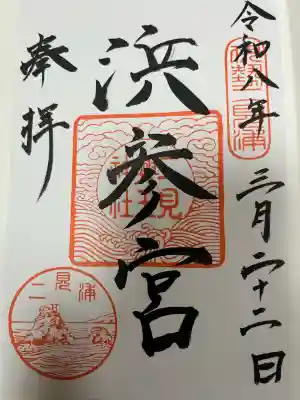 令和八年 三月二十二日
浜参宮
奉拝
伊勢二見浦
二見興玉神社
二見浦